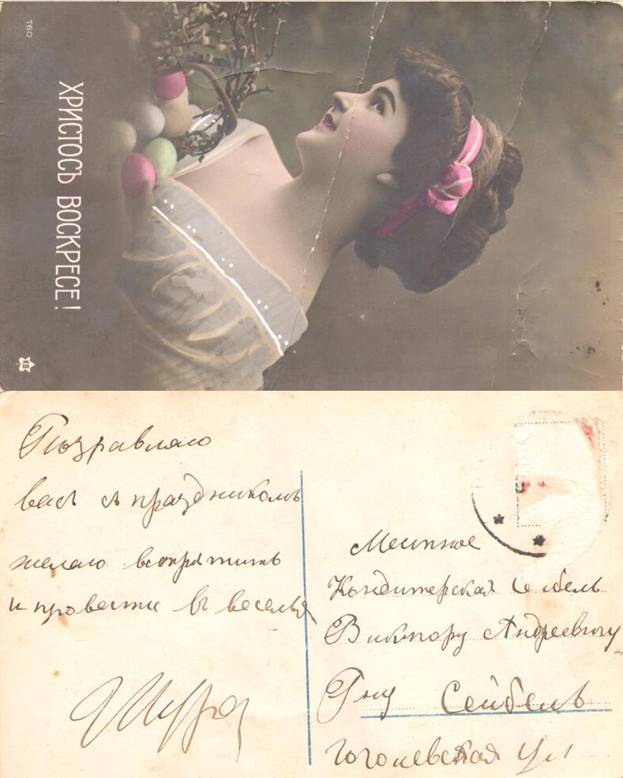 160
ХРИСТОСЪ ВОСКРЕСЕ!
Поздравляю
васъ съ праздникомъ
желаю встретить
и провести въ веселья
Шура
Местное
Кондитерская Сейбель
Виктору Андреевичу
Гну Сейбель
Гоголевская ул